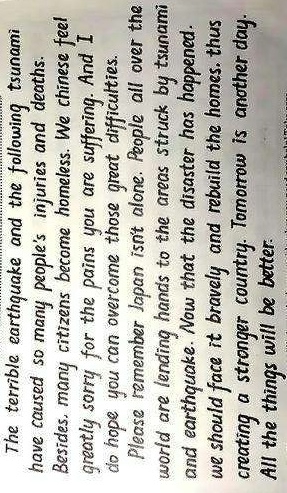 The terrible earthquake and the following tsunami
have caused so many people's injuries and deaths.
Besides, many citizens become homeless. We chinese feel
greatly sorry for the pains you are suffering. And I
do hope you can overcome those great difficulties.
Please remember Japan isn't alone. People all over the
world are lending hands to the areas struck by tsunami
and earthquake. Now that the disaster has happened.
we should face it bravely and rebuild the homes. thus
creating a stronger country. Tomorrow is another day.
All the things will be better.